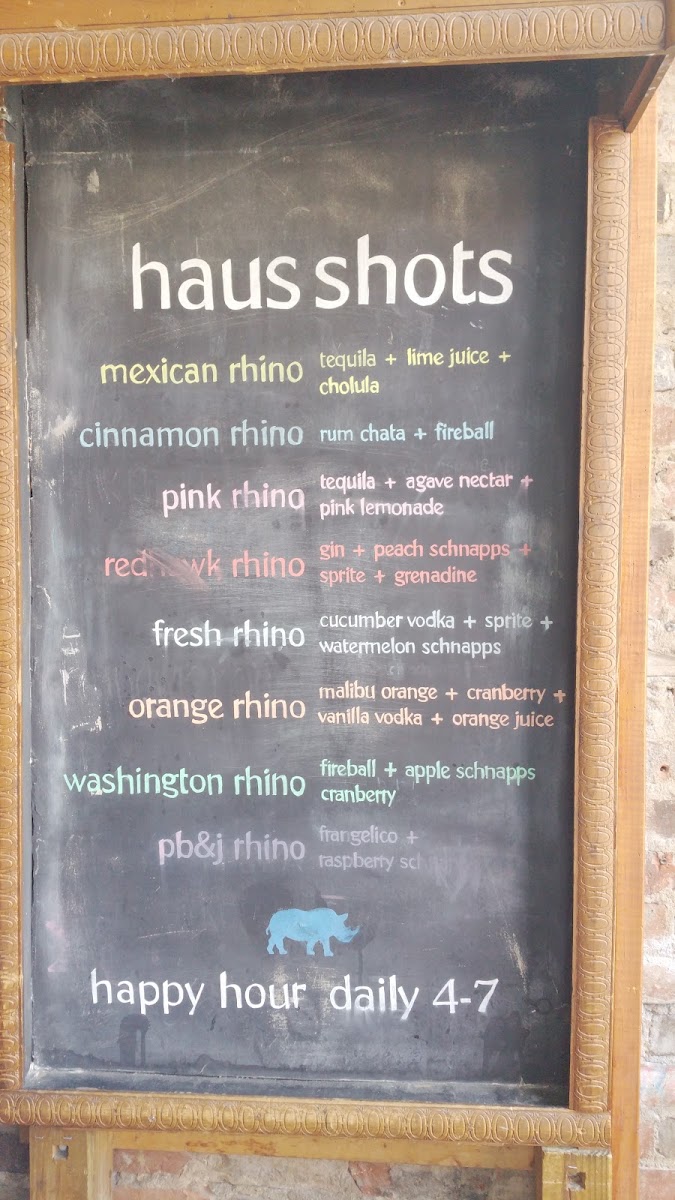 haus shots
mexican rhino tequila + lime juice +
cholula
cinnamon rhino rum chata + fireball
pink rhino tequila + agave nectar +
pink lemonade
redhawk rhino gin + peach schnapps +
sprite + grenadine
fresh rhino cucumber vodka + sprite +
watermelon schnapps
orange rhino malibu orange + cranberry +
vanilla vodka + orange juice
washington rhino fireball + apple schnapps
cranberry
pb&j rhino frangelico +
raspberry
happy hour daily 4-7